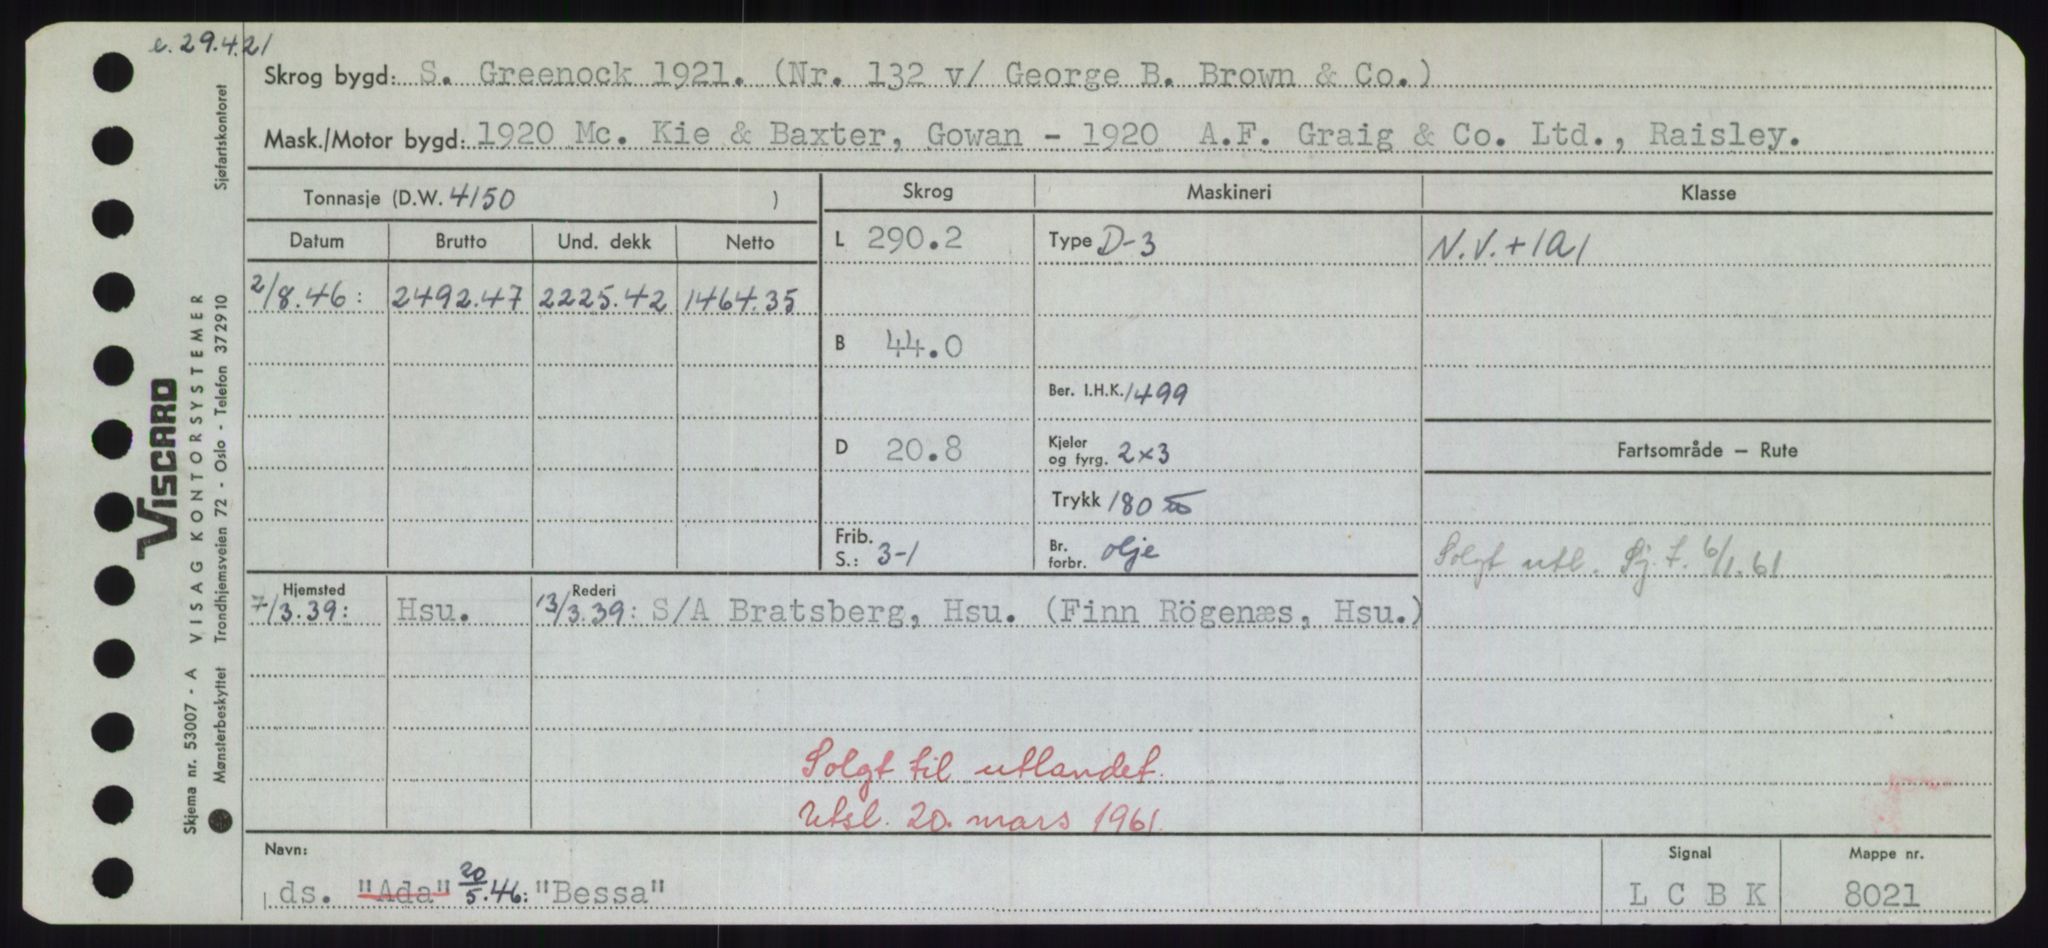 c. 29.4.21
Skrog bygd: S. Greenock 1921. (Nr. 132 v/ George B. Brown & Co.)
Mask./Motor bygd: 1920 Mc. Kie & Baxter, Gowan - 1920 A.F. Graig & Co. Ltd., Raisley.
Tonnasje (D.W. 4150 )
Datum Brutto Und. dekk Netto
2/8.46: 2492.47 2225.42 1464.35
Skrog Maskineri Klasse
L 290.2 Type D-3 N.V.+1A1
B 44.0
Ber. I.H.K. 1499
D 20.8 Kjeler og fyrg. 2x3 Fartsområde – Rute
Trykk 180
Frib. S.: 3-1 Br. forbr. olje
Solgt utl. Sj.f. 6/1.61
Hjemsted Rederi
7/3.39: Hsu. 13/3.39: S/A Bratsberg, Hsu. (Finn Rögenæs, Hsu.)
Solgt til utlandet.
Utsl. 20. mars 1961.
Navn: Signal Mappe nr.
ds. "Ada" 20/5.46: "Bessa" L C B K 8021
VISCARD
Skjema nr. 53007 - A VISAG KONTORSYSTEMER
Mønsterbeskyttet Trondhjemsveien 72 - Oslo - Telefon 372910 Sjøfartskontoret